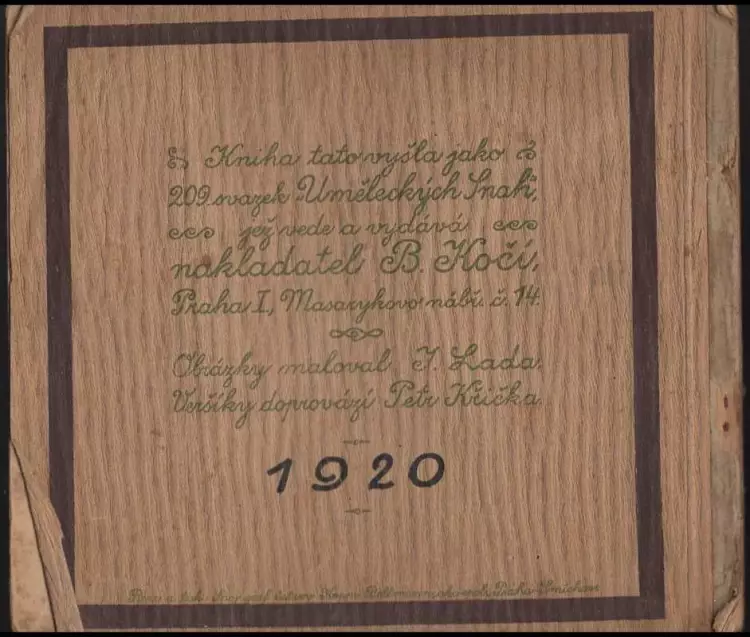 Kniha tato vyšla jako
209. svazek „Uměleckých Snah",
jež vede a vydává
nakladatel B. Kočí,
Praha I, Masarykovo nábř. č. 14.
Obrázky maloval J. Lada.
Veršíky doprovází Petr Křička.
1920
a tisk Praha-Smíchov